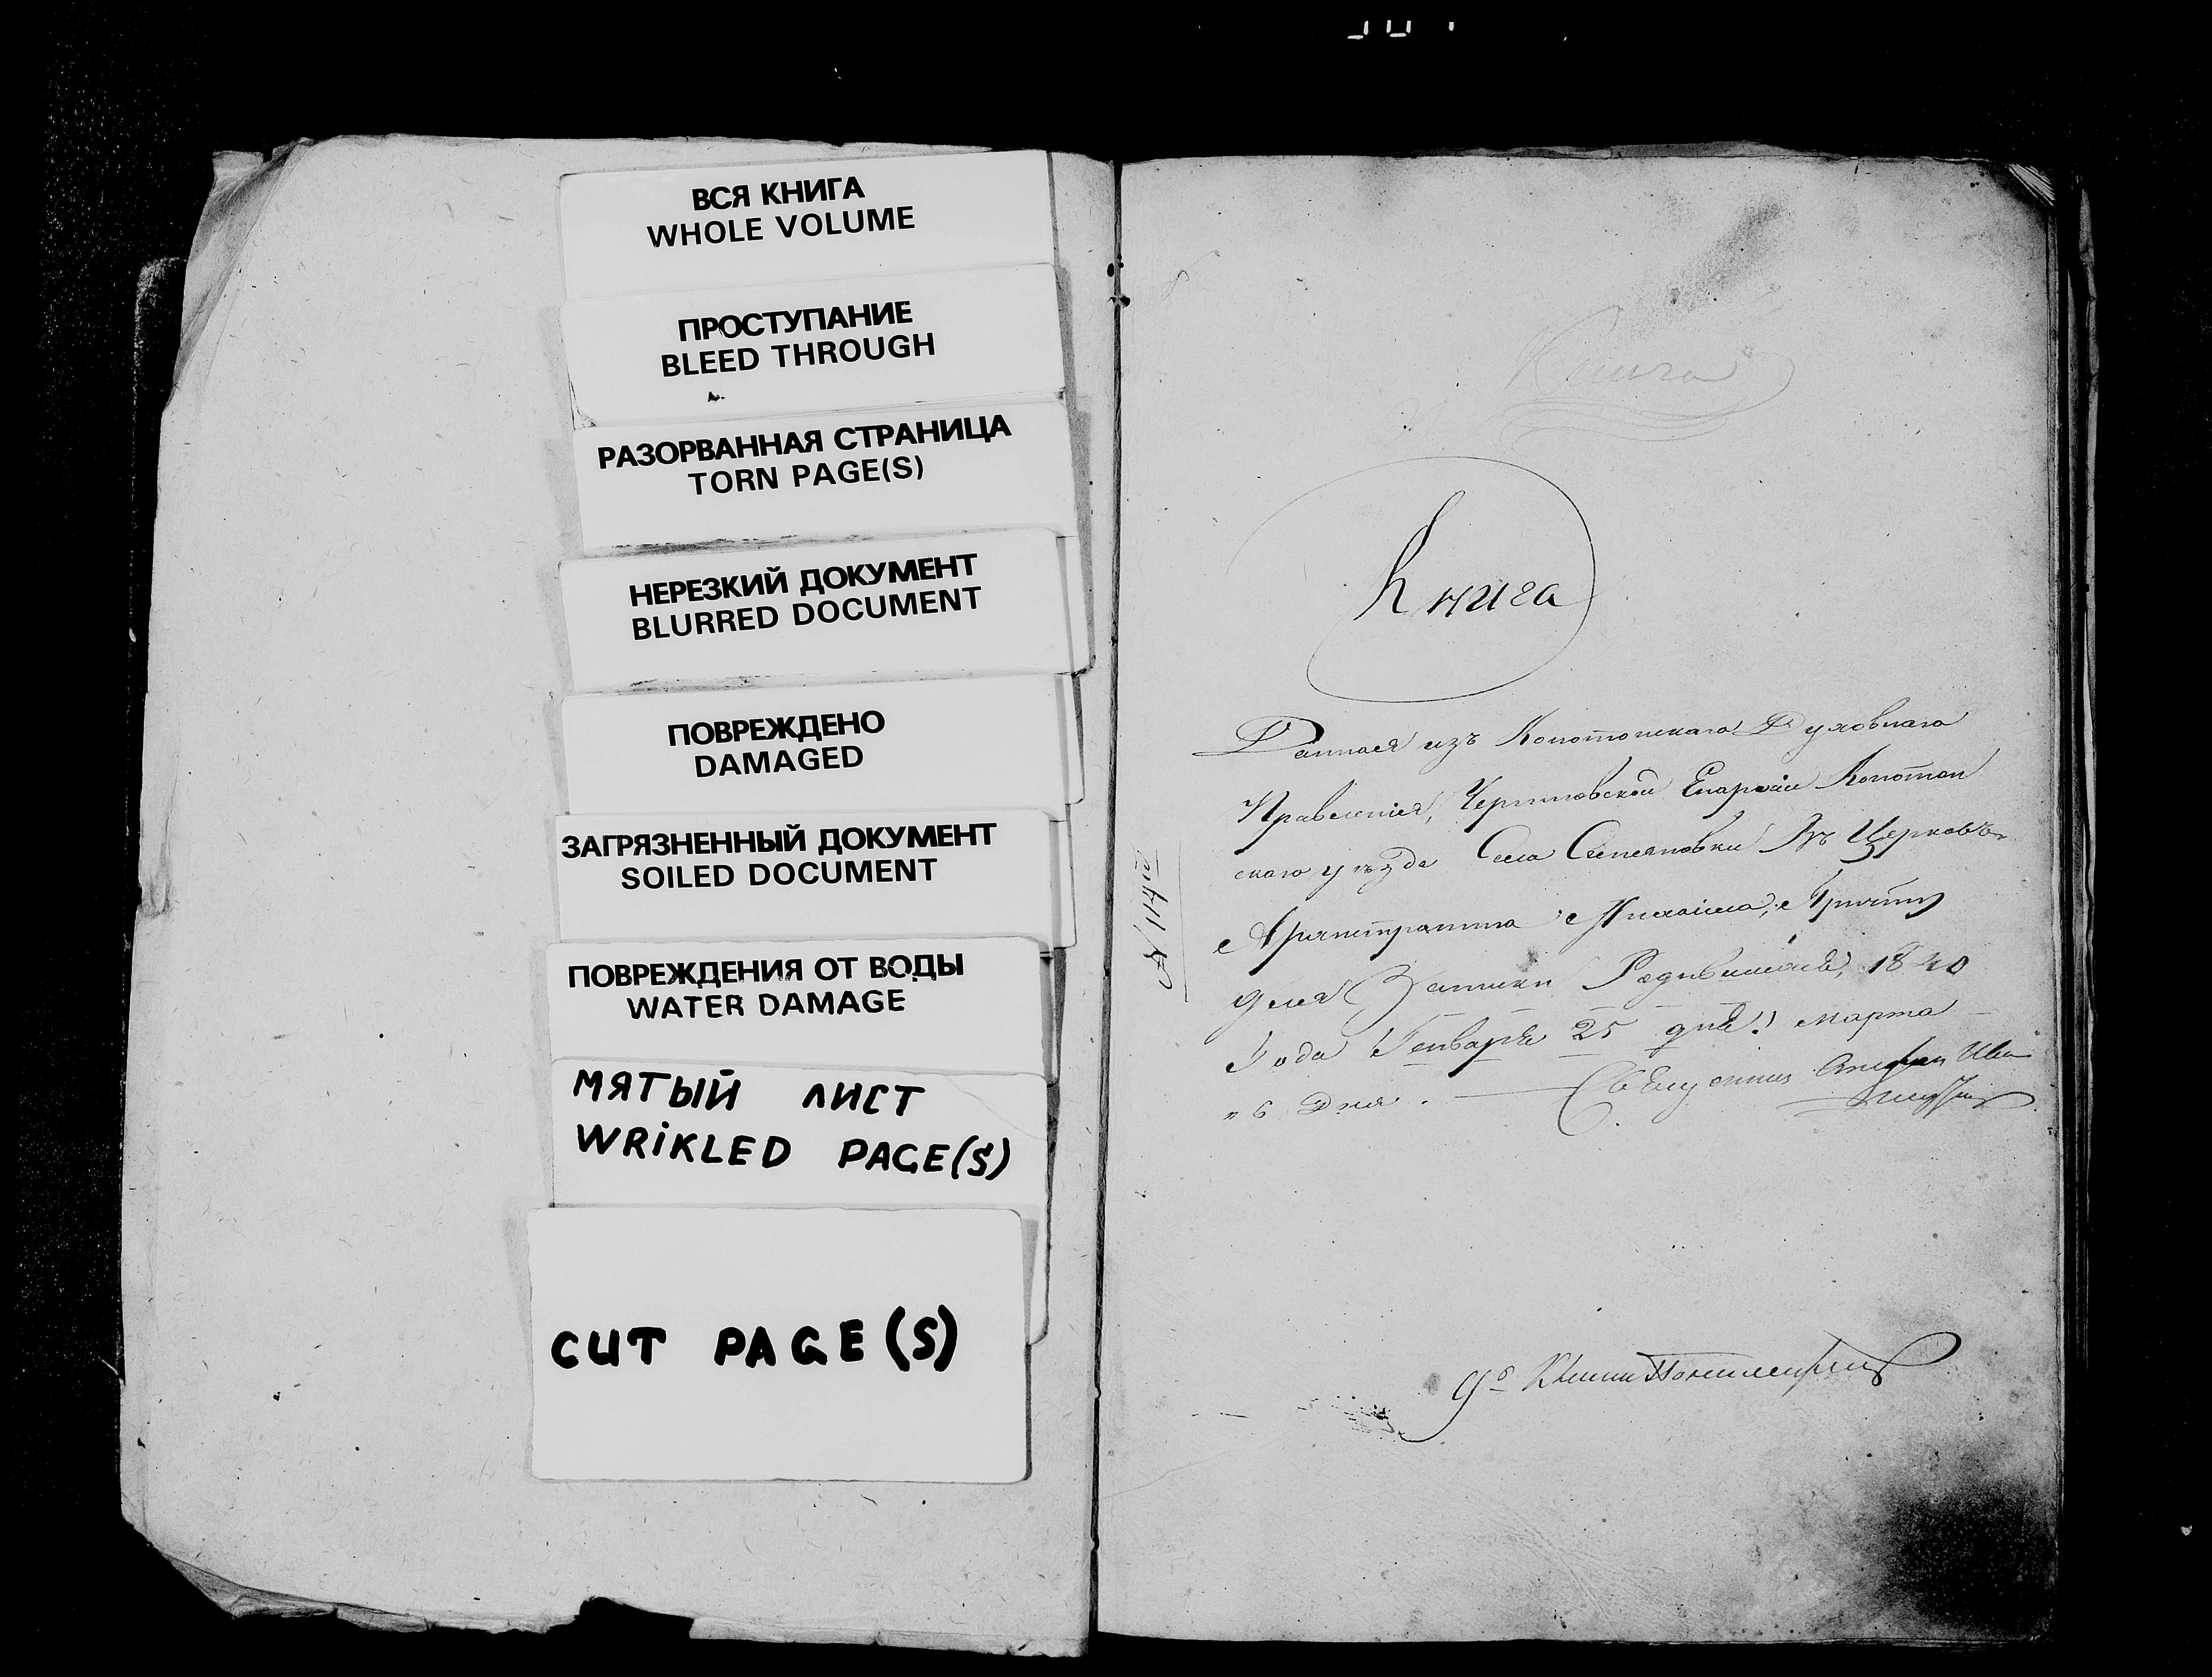 ВСЯ КНИГА
WHOLE VOLUME
ПРОСТУПАНИЕ
BLEED THROUGH
РАЗОРВАННАЯ СТРАНИЦА
TORN PAGE(S)
НЕРЕЗКИЙ ДОКУМЕНТ
BLURRED DOCUMENT
ПОВРЕЖДЕНО
DAMAGED
ЗАГРЯЗНЕННЫЙ ДОКУМЕНТ
SOILED DOCUMENT
ПОВРЕЖДЕНИЯ ОТ ВОДЫ
WATER DAMAGE
МЯТЫЙ ЛИСТ
WRiKLED PAGE(S)
CUT PAGE(S)
Книга
Книга
Данная изъ Конотопскаго Духовнаго
Правления, Черниговской Епархіи Конотоп
скаго уезда Села Въ Церковь
Архистратига Михаила,
для Записки 1840
Года Генваря 25 дня! марта
6 Дня.
№ 114